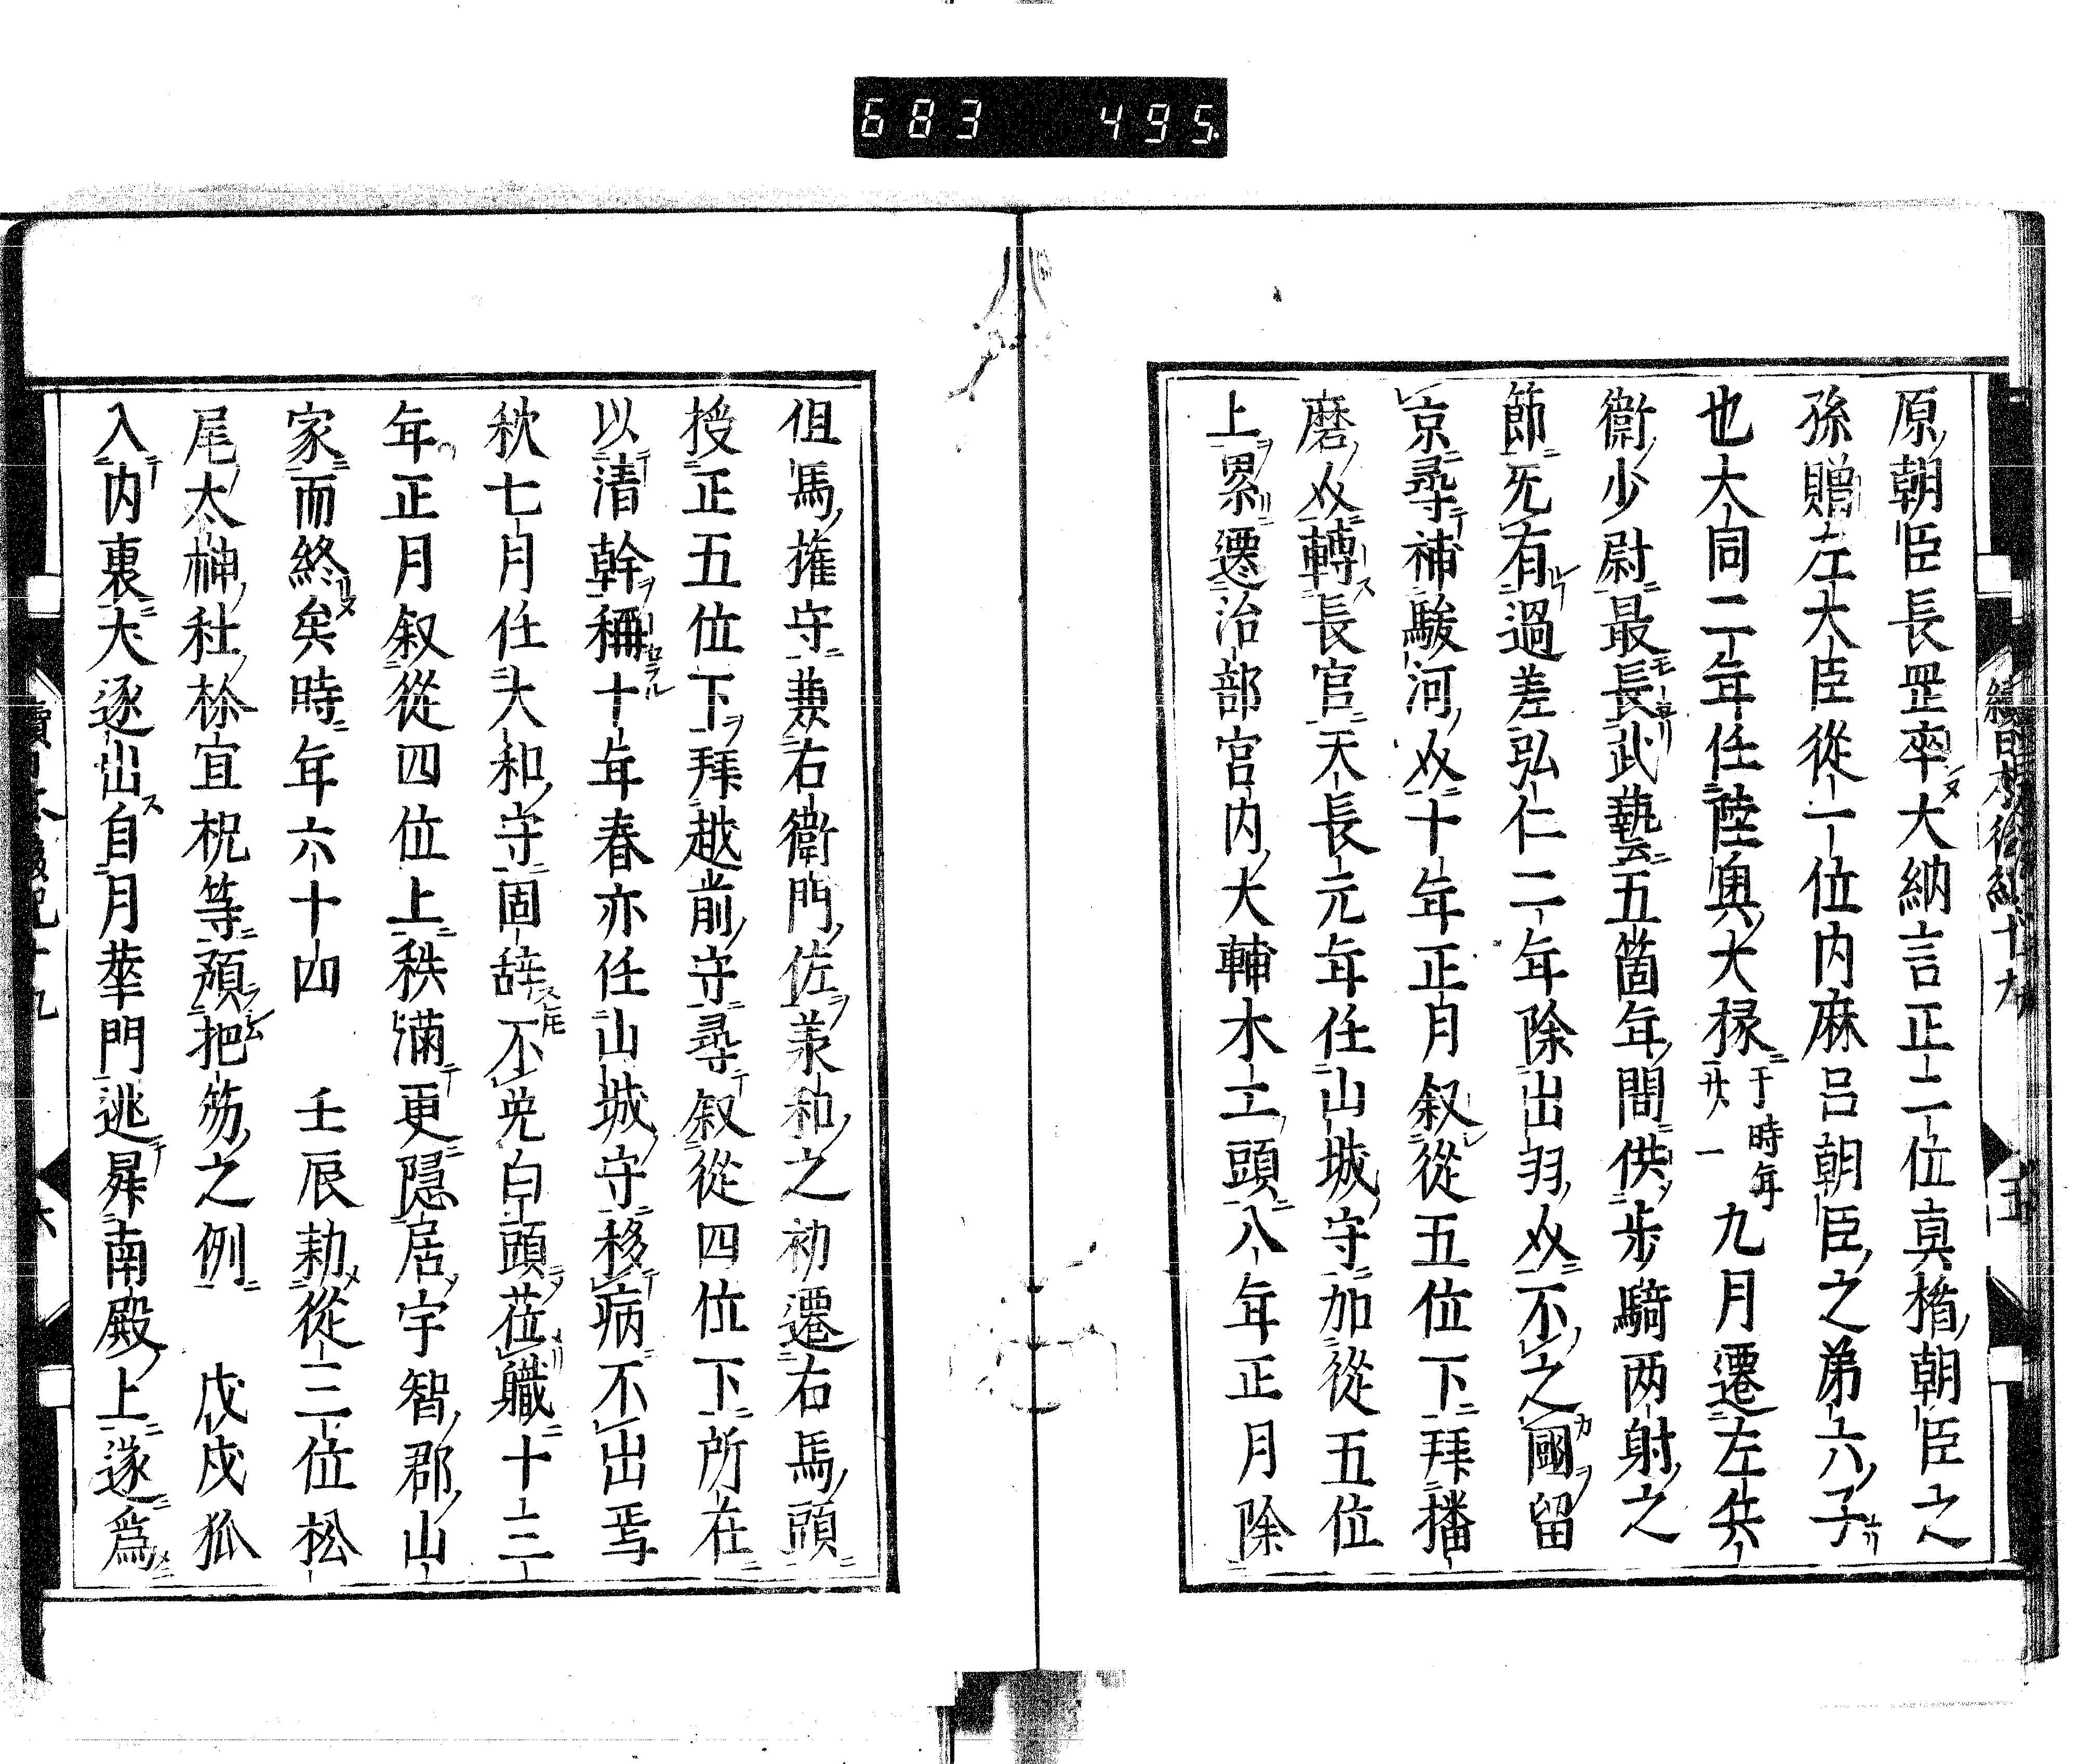 683 495
續日本後紀十九
五
原朝臣長罡卒大納言正二位真楯朝臣之
孫贈左大臣從一位内麻呂朝臣之弟六子
也大同二年任陸奥大掾于時年廿一九月遷左兵
衛少尉最長武藝云五箇年間供歩騎两射之
節旡有過差弘仁二年除出羽㸚不之國留
京尋補駿河㸚十年正月叙從五位下拜播
磨㸚轉長官天長元年任山城守加從五位
上累遷治部宮内大輔木工頭八年正月除
但馬權守兼右衛門佐羕和之初遷右馬頭
授正五位下拜越前守尋叙從四位下所在
以清幹稱十年春亦任山城守移病不出焉
秋七月任大和守固辞不免白頭莅職十三
年正月叙從四位上秩滿更隱居宇智郡山
家而終矣時年六十四 壬辰勅從三位松
尾太神社祢宜祝等預把笏之例 戊戌狐
入内裏犬逐出自月華門逃昇南殿上遂爲
續日本後紀十九
六